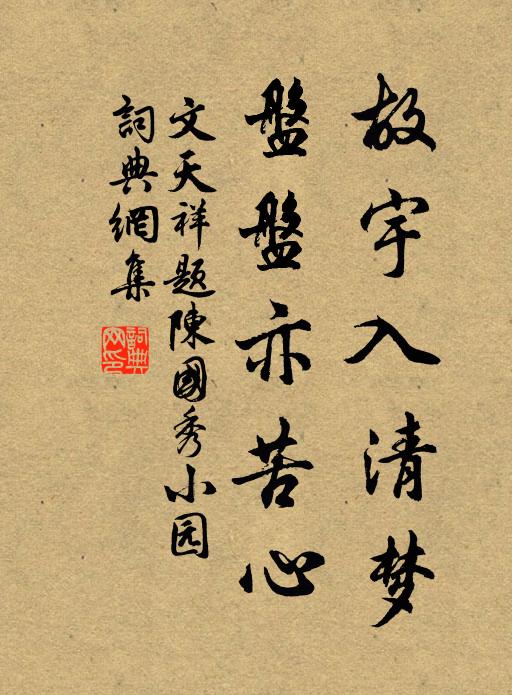 故宇入清梦
盤盤亦苦心
文天祥题陳國秀小园
詞典網集
詞典网印